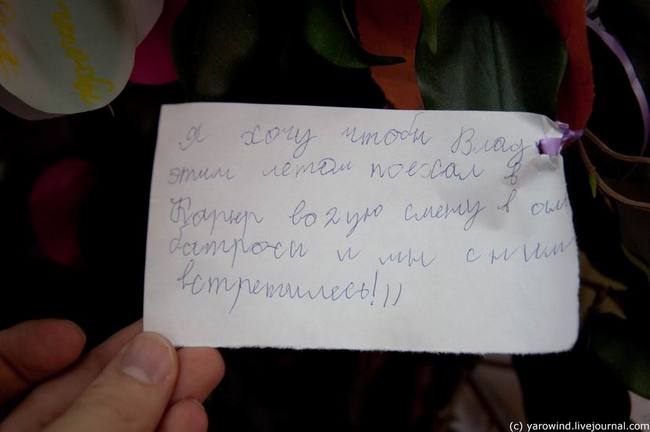 я хочу чтобы Влад
этим летом поехал в
Карьер во 2ую смену в ал
батросы и мы с ним
встретилесь!))
(c) yarowind.livejournal.com